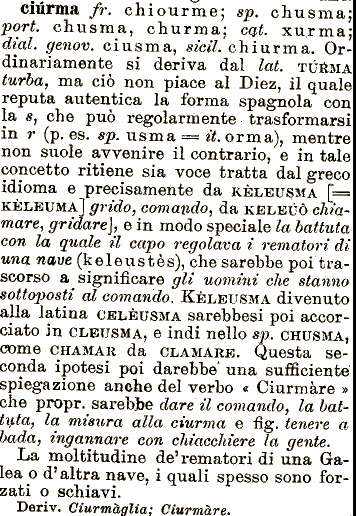 ciúrma fr. chiourme; sp. chusma;
port. chusma, churma; cat. xurma;
dial. genov. ciusma, sicil. chiurma. Or-
dinariamente si deriva dal lat. TÚRMA
turba, ma ciò non piace al Diez, il quale
reputa autentica la forma spagnola con
la s, che può regolarmente trasformarsi
in r (p. es. sp. usma = it. orma), mentre
non suole avvenire il contrario, e in tale
concetto ritiene sia voce tratta dal greco
idioma e precisamente da KÈLEUSMA [=
KÈLEUMA] grido, comando, da KELEUÔ chia-
mare, gridare], e in modo speciale la battuta
con la quale il capo regolava i rematori di
una nave (keleustès), che sarebbe poi tra-
scorso a significare gli uomini che stanno
sottoposti al comando. KÈLEUSMA divenuto
alla latina CELÈUSMA sarebbesi poi accor-
ciato in CLEUSMA, e indi nello sp. CHUSMA,
come CHAMAR da CLAMARE. Questa se-
conda ipotesi poi darebbe una sufficiente
spiegazione anche del verbo « Ciurmàre »
che propr. sarebbe dare il comando, la bat-
tuta, la misura alla ciurma e fig. tenere a
bada, ingannare con chiacchiere la gente.
La moltitudine de' rematori di una Ga-
lea o d'altra nave, i quali spesso sono for-
zati o schiavi.
Deriv. Ciurmàglia; Ciurmàre.